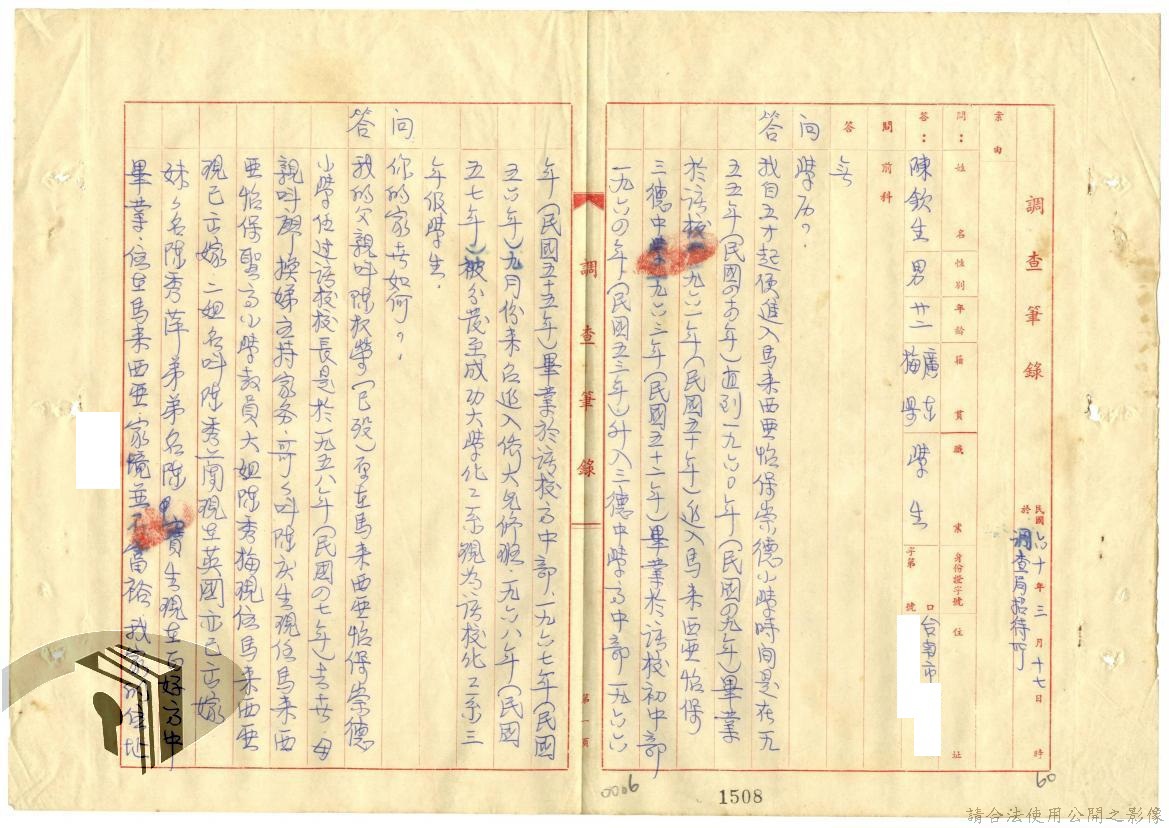 調查筆錄
民國六十年三月十七日 時
於調查局招待所
案由
問：姓名 性別 年齡 籍貫 職業 身份證字號 住址
答：陳欽生 男 廿二 廣東梅縣 學生 字第 號 台南市
問 前科
答 無
問 學历？
答 我自五才起便進入馬來西亜怡保崇德小學時间是在一九
五五年（民國四十四年）直到一九六〇年（民國四九年）畢業
於該校一九六一年（民國五十年）進入馬來西亜怡保
三德中學一九六三年（民國五十二年）畢業於該校初中部
一九六四年（民國五三年）升入三德中學高中部一九六六
調查筆錄
第一頁
年（民國五十五年）畢業於該校高中部、一九六七年（民國
五六年）九月份來台進入僑大先修班、一九六八年（民國
五七年）被分發至成功大學化工系現為該校化工系三
年级學生．
问 你的家世如何？
答 我的父親叫陳 榮（已殁）原在馬來西亜怡保崇德
小學任过該校校長是於一九五八年（民國四七年）去世、母
親叫 換娣主持家务、哥哥叫陳庆生現住馬來西
亜怡保 小學教員大姐陳秀梅現住馬來西亜
現已出嫁、二姐名叫陳秀蘭現在英國亦已出嫁
妹妹名陳秀萍弟弟名陳 生現在 高中
畢業．住在馬來西亜、家境並不富裕、我家的住址
0006
1508
60
請合法使用公開之影像